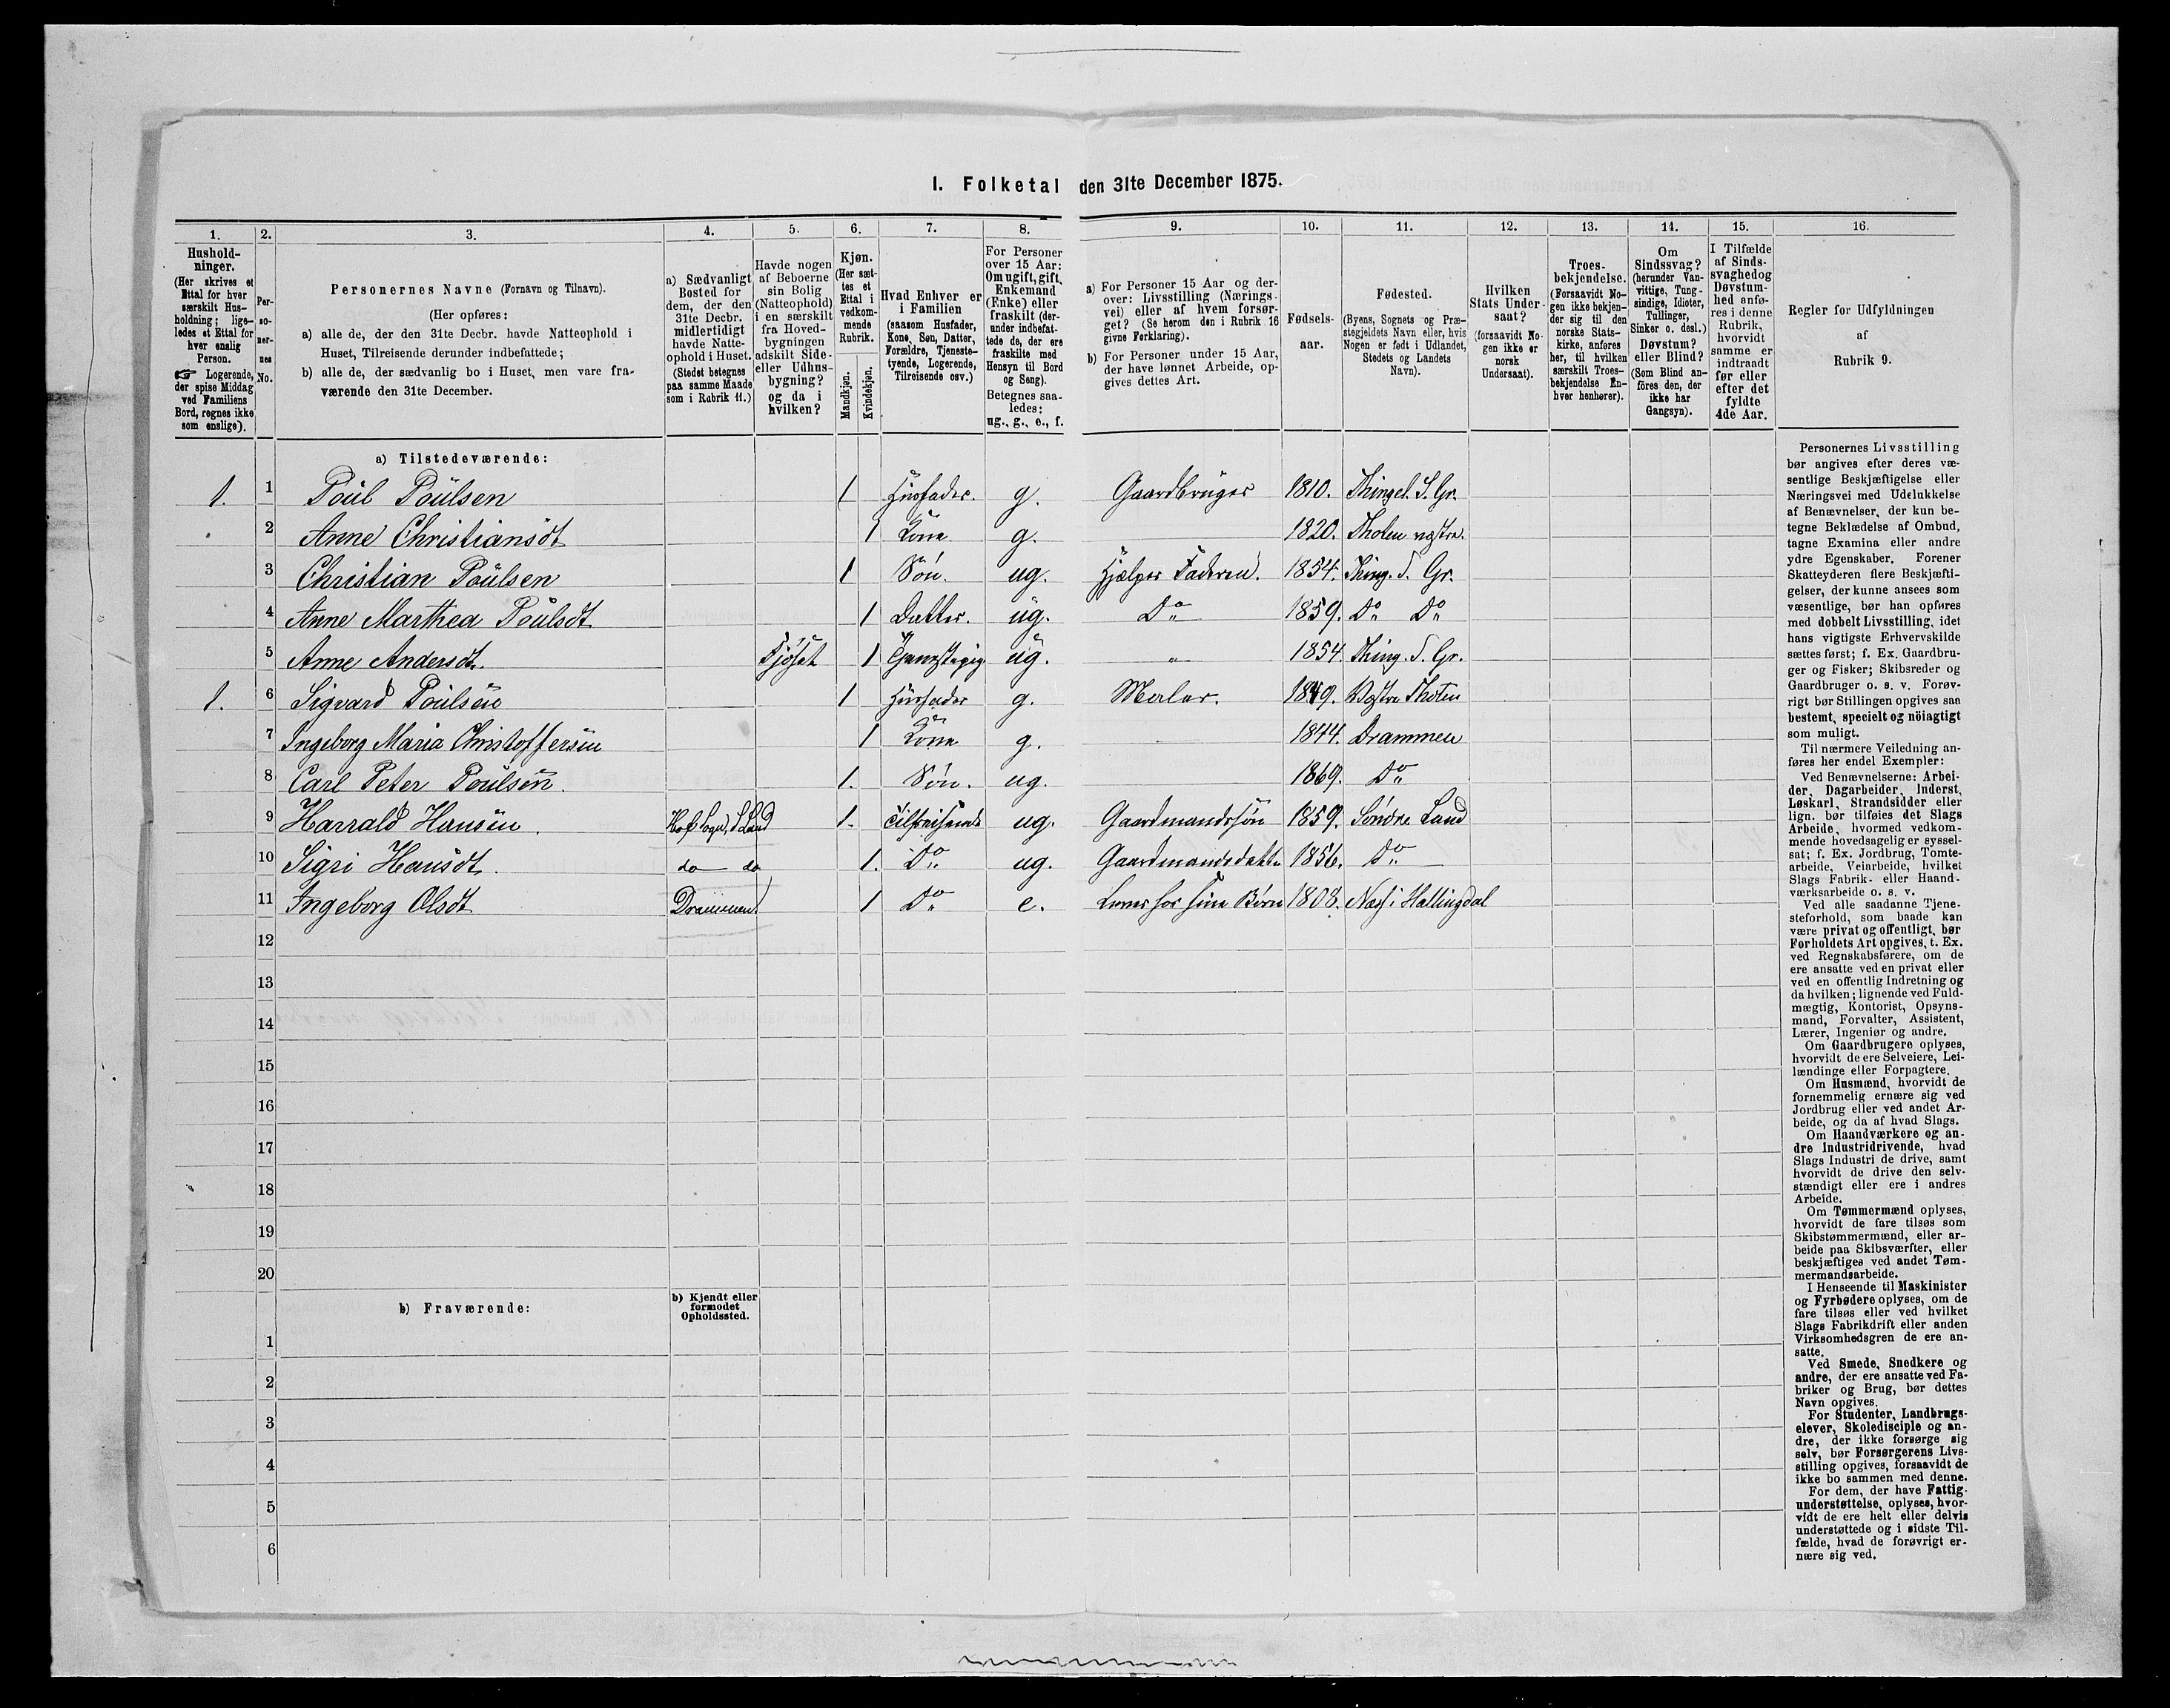 I. Folketal den 31te December 1875.
1. 2. 3. 4. 5. 6. 7. 8. 9. 10. 11. 12. 13. 14. 15. 16.
Hushold-
ninger.
(Her skrives et
Ettal for hver
særskilt Hus-
holdning; lige-
ledes et Ettal for
hver enslig
Person.
☞ Logerende,
der spise Middag
ved Familiens
Bord, regnes ikke
som enslige).
Per-
so-
ner-
nes
No.
Personernes Navne (Fornavn og Tilnavn).
(Her opføres:
a) alle de, der den 31te Decbr. havde Natteophold i
Huset, Tilreisende derunder indbefattede;
b) alle de, der sædvanlig bo i Huset, men vare fra-
værende den 31te December.
a) Sædvanligt
Bosted for
dem, der den
31te Decbr.
midlertidigt
havde Natte-
ophold i Huset.
(Stedet betegnes
paa samme Maade
som i Rubrik 11.)
Havde nogen
af Beboerne
sin Bolig
(Natteophold)
i en særskilt
fra Hoved-
bygningen
adskilt Side-
eller Udhus-
bygning?
og da i
hvilken?
Kjøn.
(Her sæt-
tes et
Ettal i
vedkom-
mende
Rubrik.
Mandkjøn.
Kvindekjøn.
Hvad Enhver er
i Familien
(saasom Husfader,
Kone, Søn, Datter,
Forældre, Tjeneste-
tyende, Logerende,
Tilreisende osv.)
For Personer
over 15 Aar:
Om ugift, gift,
Enkemand
(Enke) eller
fraskilt (der-
under indbefat-
tede de, der ere
fraskilte med
Hensyn til Bord
og Seng).
Betegnes saa-
ledes:
ug., g., e., f.
a) For Personer 15 Aar og der-
over: Livsstilling (Nærings-
vei) eller af hvem forsør-
get? (Se herom den i Rubrik 16
givne Forklaring).
b) For Personer under 15 Aar,
der have lønnet Arbeide, op-
gives dettes Art.
Fødsels-
aar.
Fødested.
(Byens, Sognets og Præ-
stegjeldets Navn eller, hvis
Nogen er født i Udlandet,
Stedets og Landets
Navn).
Hvilken
Stats Under-
saat?
(forsaavidt No-
gen ikke er
norsk
Undersaat).
Troes-
bekjendelse.
(Forsaavidt No-
gen ikke bekjen-
der sig til den
norske Stats-
kirke, anføres
her, til hvilken
særskilt Troes-
bekjendelse En-
hver henhører).
Om
Sindssvag?
(herunder Van-
vittige, Tung-
sindige, Idioter,
Tullinger,
Sinker o. desl.)
Døvstum?
eller Blind?
(Som Blind an-
føres den, der
ikke har
Gangsyn).
I Tilfælde
af Sinds-
svaghed og
Døvstum-
hed anfø-
res i denne
Rubrik,
hvorvidt
samme er
indtraadt
før eller
efter det
fyldte
4de Aar.
Regler for Udfyldningen
af
Rubrik 9.
a) Tilstedeværende:
1. 1 Poul Poulsen 1 Husfader. g. Gaardbruger 1810. Thingel. S. Gr.
2 Anne Christiansdt 1 Kone g. 1820. Thoten vestre.
3 Christian Poulsen 1 Søn. ug. Hjælper Faderen. 1854. Thing. S. Gr.
4 Anne Marthea Poulsdt 1 Datter. ug. Do 1859. Do Do
5 Anne Andersdt. Fjøset 1 Tjenestepig ug. " 1854 Thing. S. Gr.
1. 6 Sigvard Poulsen 1 Husfader g. Maler. 1849. Vestre Thoten
7 Ingeborg Maria Christoffersen 1 Kone g. 1844. Drammen
8 Carl Peter Poulsen. 1. Søn. ug. 1869. Do
9 Harrald Hansen. Hof Sogn, S Land 1. Tilreisende ug. Gaardmandssøn 1859. Søndre Land
10 Sigri Hansdt. do do 1. Do ug. Gaardmandsdatter 1856. Do
11 Ingeborg Olsdt Drammen 1 Do e. Lever hos sine Børn 1808. Næs i Hallingdal
12
13
14
15
16
17
18
19
20
b) Fraværende:
b) Kjendt eller
formodet
Opholdssted.
1
2
3
4
5
6
Personernes Livsstilling
bør angives efter deres væ-
sentlige Beskjæftigelse eller
Næringsvei med Udelukkelse
af Benævnelser, der kun be-
tegne Beklædelse af Ombud,
tagne Examina eller andre
ydre Egenskaber. Forener
Skatteyderen flere Beskjæfti-
gelser, der kunne ansees som
væsentlige, bør han opføres
med dobbelt Livsstilling, idet
hans vigtigste Erhvervskilde
sættes først; f. Ex. Gaardbru-
ger og Fisker; Skibsreder og
Gaardbruger o. s. v. Forøv-
rigt bør Stillingen opgives saa
bestemt, specielt og nöiagtigt
som muligt.
Til nærmere Veiledning an-
føres her endel Exempler:
Ved Benævnelserne: Arbei-
der, Dagarbeider, Inderst,
Løskarl, Strandsidder eller
lign. bør tilføies det Slags
Arbeide, hvormed vedkom-
mende hovedsagelig er syssel-
sat; f. Ex. Jordbrug, Tomte-
arbeide, Veiarbeide, hvilket
Slags Fabrik- eller Haand-
værksarbeide o. s. v.
Ved alle saadanne Tjene-
steforhold, som baade kan
være privat og offentligt, bør
Forholdets Art opgives, t. Ex.
ved Regnskabsførere, om de
ere ansatte ved en privat eller
ved en offentlig Indretning og
da hvilken; lignende ved Fuld-
mægtig, Kontorist, Opsyns-
mand, Forvalter, Assistent,
Lærer, Ingeniør og andre.
Om Gaardbrugere oplyses,
hvorvidt de ere Selveiere, Lei-
lændinge eller Forpagtere.
Om Husmænd, hvorvidt de
fornemmelig ernære sig ved
Jordbrug eller ved andet Ar-
beide, og da af hvad Slags.
Om Haandværkere og an-
dre Industridrivende, hvad
Slags Industri de drive, samt
hvorvidt de drive den selv-
stændigt eller ere i andres
Arbeide.
Om Tømmermænd oplyses,
hvorvidt de fare tilsøs som
Skibstømmermænd, eller ar-
beide paa Skibsværfter, eller
beskjæftiges ved andet Tøm-
mermandsarbeide.
I Henseende til Maskinister
og Fyrbødere oplyses, om de
fare tilsøs eller ved hvilket
Slags Fabrikdrift eller anden
Virksomhedsgren de ere an-
satte.
Ved Smede, Snedkere og
andre, der ere ansatte ved Fa-
briker og Brug, bør dettes
Navn opgives.
For Studenter, Landbrugs-
elever, Skoledisciple og an-
dre, der ikke forsørge sig
selv, bør Forsørgerens Livs-
stilling opgives, forsaavidt de
ikke bo sammen med denne.
For dem, der have Fattig-
understøttelse, oplyses, hvor-
vidt de ere helt eller delvis
understøttede og i sidste Til-
fælde, hvad de forøvrigt er-
nære sig ved.